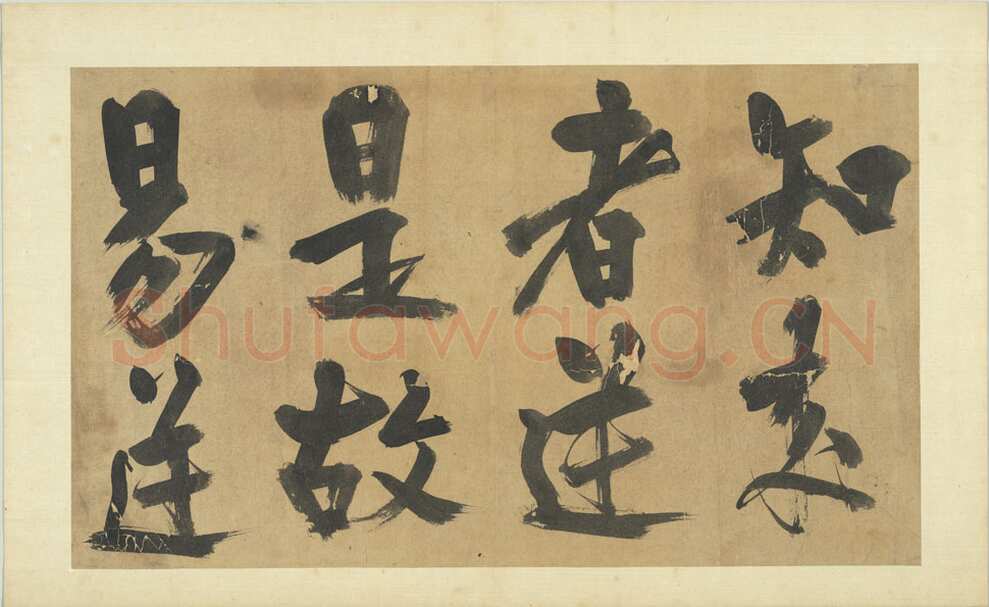 知來
者逆
是故
易逆
Shufawang.CN